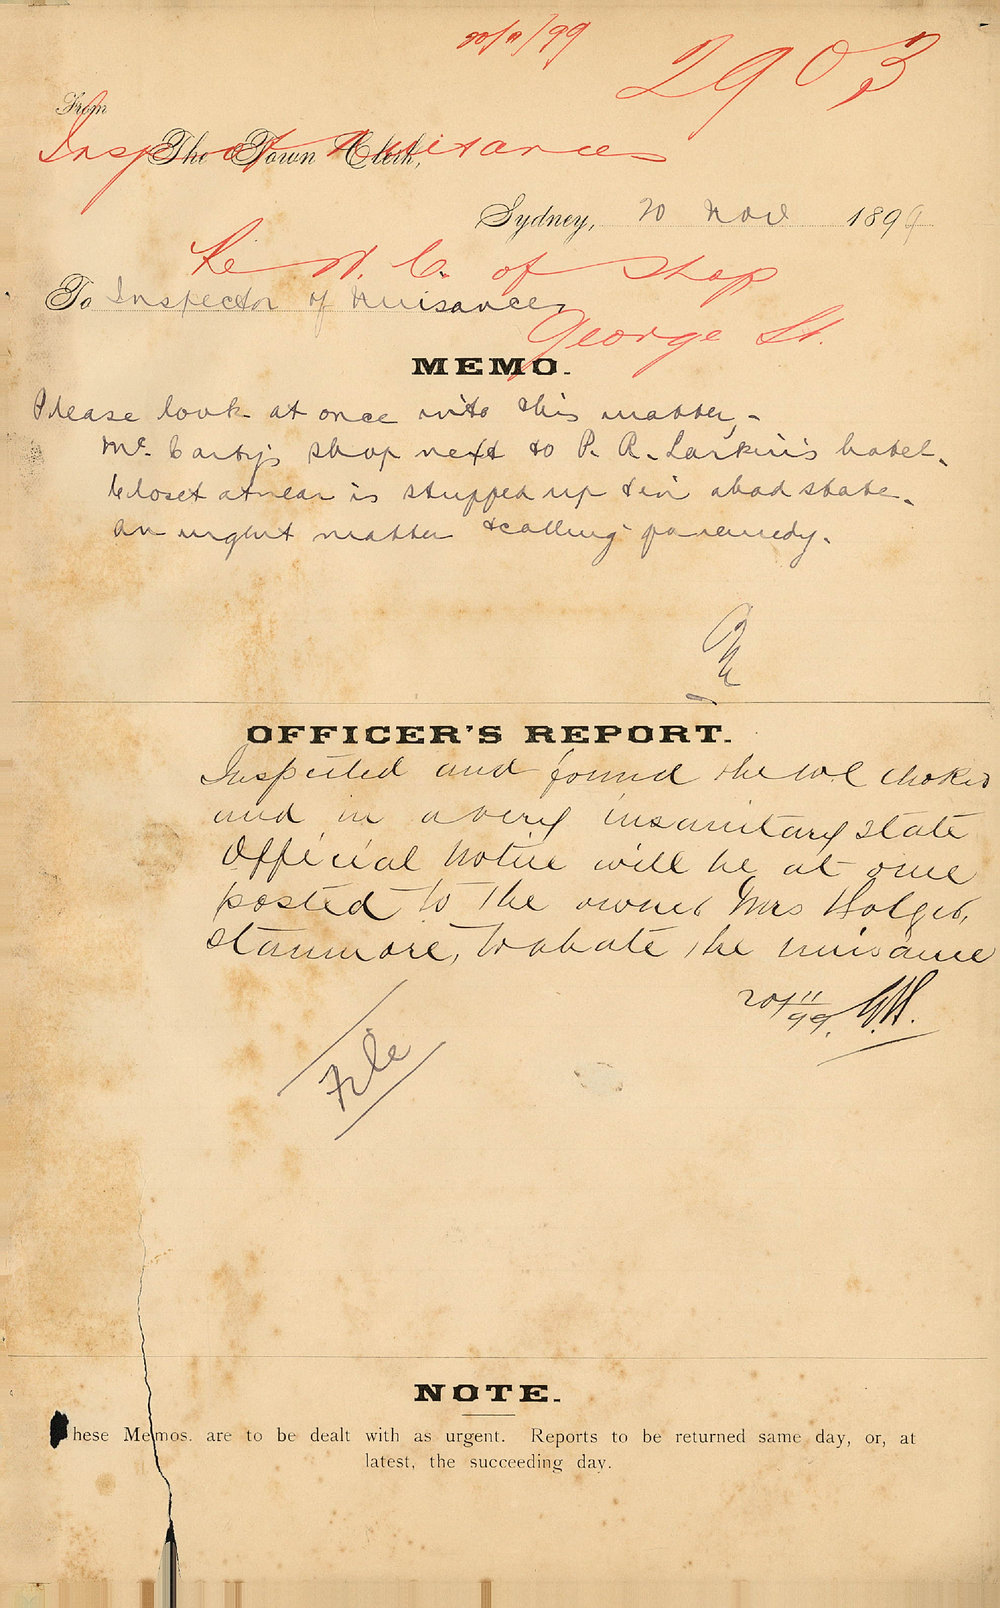 20/11/99
2903
From
The Town Clerk,
Inspect Nuisances
Sydney, 20 Nov 1899
Re W. C. of shop
To Inspector of Nuisances
George St.
MEMO.
Please look at once into this matter,
McCarthy's shop next to P. R. Larkin's hotel.
Closet at rear is stopped up & in a bad state.
An urgent matter & calling for remedy.
OFFICER'S REPORT.
Inspected and found the W.C choked
and in a very insanitary state
Official Notice will be at once
posted to the owner Mrs
Stanmore, to abate the nuisance
20/11/99. G.H.
File
NOTE.
hese Memos. are to be dealt with as urgent. Reports to be returned same day, or, at
latest, the succeeding day.